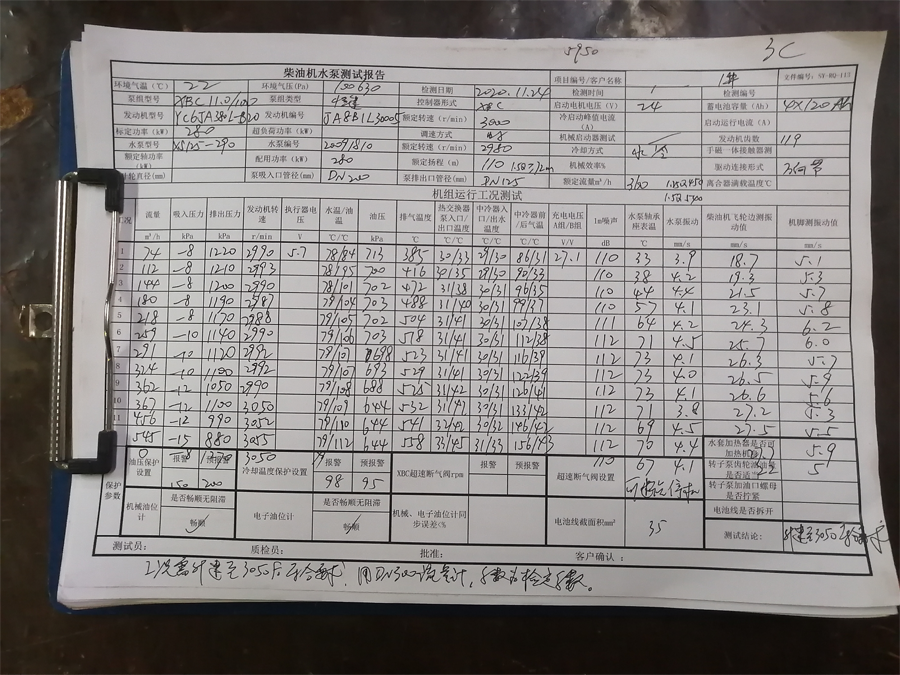 5950
3C
柴油机水泵测试报告 项目编号/客户名称 文件编号：SY-RQ-113
环境气温（℃） 22 环境气压(Pa) 100630 检测日期 2020.11.24 检测时间 检测编号
泵组型号 XBC 11.0/100 泵组类型 控制器形式 XBC 启动电机电压（V） 24 蓄电池容量（Ah） 4X120
发动机型号 YC6JA380L-B20 发动机编号 JA8B1L30005 额定转速（r/min） 3000 冷启动峰值电流（A） 启动运行电流（A）
标定功率（kW） 280 超负荷功率（kW） 调速方式 机械启动器测试 发动机齿数 119
水泵型号 XS125-290 水泵编号 20091810 额定转速（r/min） 2980 冷却方式 水冷 手磁一体接触器测
额定轴功率（kW） 配用功率（kW） 280 额定扬程（m） 110 机械效率% 驱动连接形式 万向节
叶轮直径(mm) 泵吸入口管径(mm) DN200 泵排出口管径(mm) DN125 额定流量m³/h 360 离合器满载温度℃
机组运行工况测试
工况 流量 吸入压力 排出压力 发动机转速 执行器电压 水温/油温 油压 排气温度 热交换器泵入口/出口温度 中冷器入口/出水温度 中冷器前/后气温 充电电压A组/B组 1m噪声 水泵轴承座表温 水泵振动 柴油机飞轮边测振动值 机脚测振动值
m³/h kPa kPa r/min V ℃/℃ kPa ℃ ℃/℃ ℃/℃ ℃/℃ V/V dB ℃ mm/s mm/s mm/s
1 74 -8 1220 2990 5.7 78/84 713 385 30/33 29/30 86/31 27.1 110 33 3.9 18.7 5.1
2 112 -8 1210 2993 78/95 700 416 30/35 29/30 90/33 110 38 4.2 19.3 5.3
3 144 -8 1200 2990 78/101 702 472 31/38 30/31 96/35 110 44 4.4 21.5 5.7
4 180 -8 1190 2987 79/104 703 488 31/40 30/31 99/37 110 57 4.1 23.1 5.8
5 218 -8 1170 2988 79/105 702 504 31/41 30/31 107/38 111 64 4.2 24.3 6.2
6 259 -10 1140 2990 79/106 703 518 31/41 30/31 112/38 112 71 4.5 25.7 6.0
7 291 -10 1120 2992 79/107 698 523 31/41 30/31 116/39 112 73 4.1 26.3 5.7
8 324 -10 1100 2992 79/107 693 529 31/41 30/31 122/39 112 73 4.0 26.5 5.9
9 362 -12 1050 2990 79/108 688 525 31/42 30/31 126/41 112 73 4.1 26.6 5.6
10 367 -12 1100 3050 79/109 644 532 31/42 30/31 133/42 112 71 3.8 27.2 5.3
11 456 -12 990 3052 79/110 644 541 32/42 30/31 146/42 112 69 4.5 27.5 5.5
545 -15 880 3055 79/112 644 558 33/45 31/33 156/43 112 70 4.4 5.9
0 -8 1270 3050 110 67 4.1 5
保护参数 油压保护设置 报警 预报警 冷却温度保护设置 报警 预报警 XBC超速断气阀rpm 报警 预报警 超速断气阀设置 水套加热器是否可加热机
150 200 98 95 转子泵齿轮箱油位是否适当
转子泵加油口螺母是否拧紧
机械油位计 是否畅顺无阻滞 电子油位计 是否畅顺无阻滞 机械、电子油位计同步误差<% 电池线截面积mm² 35 电池线是否拆开
畅顺 畅顺 测试结论：
测试员： 质检员： 批准： 客户确认：